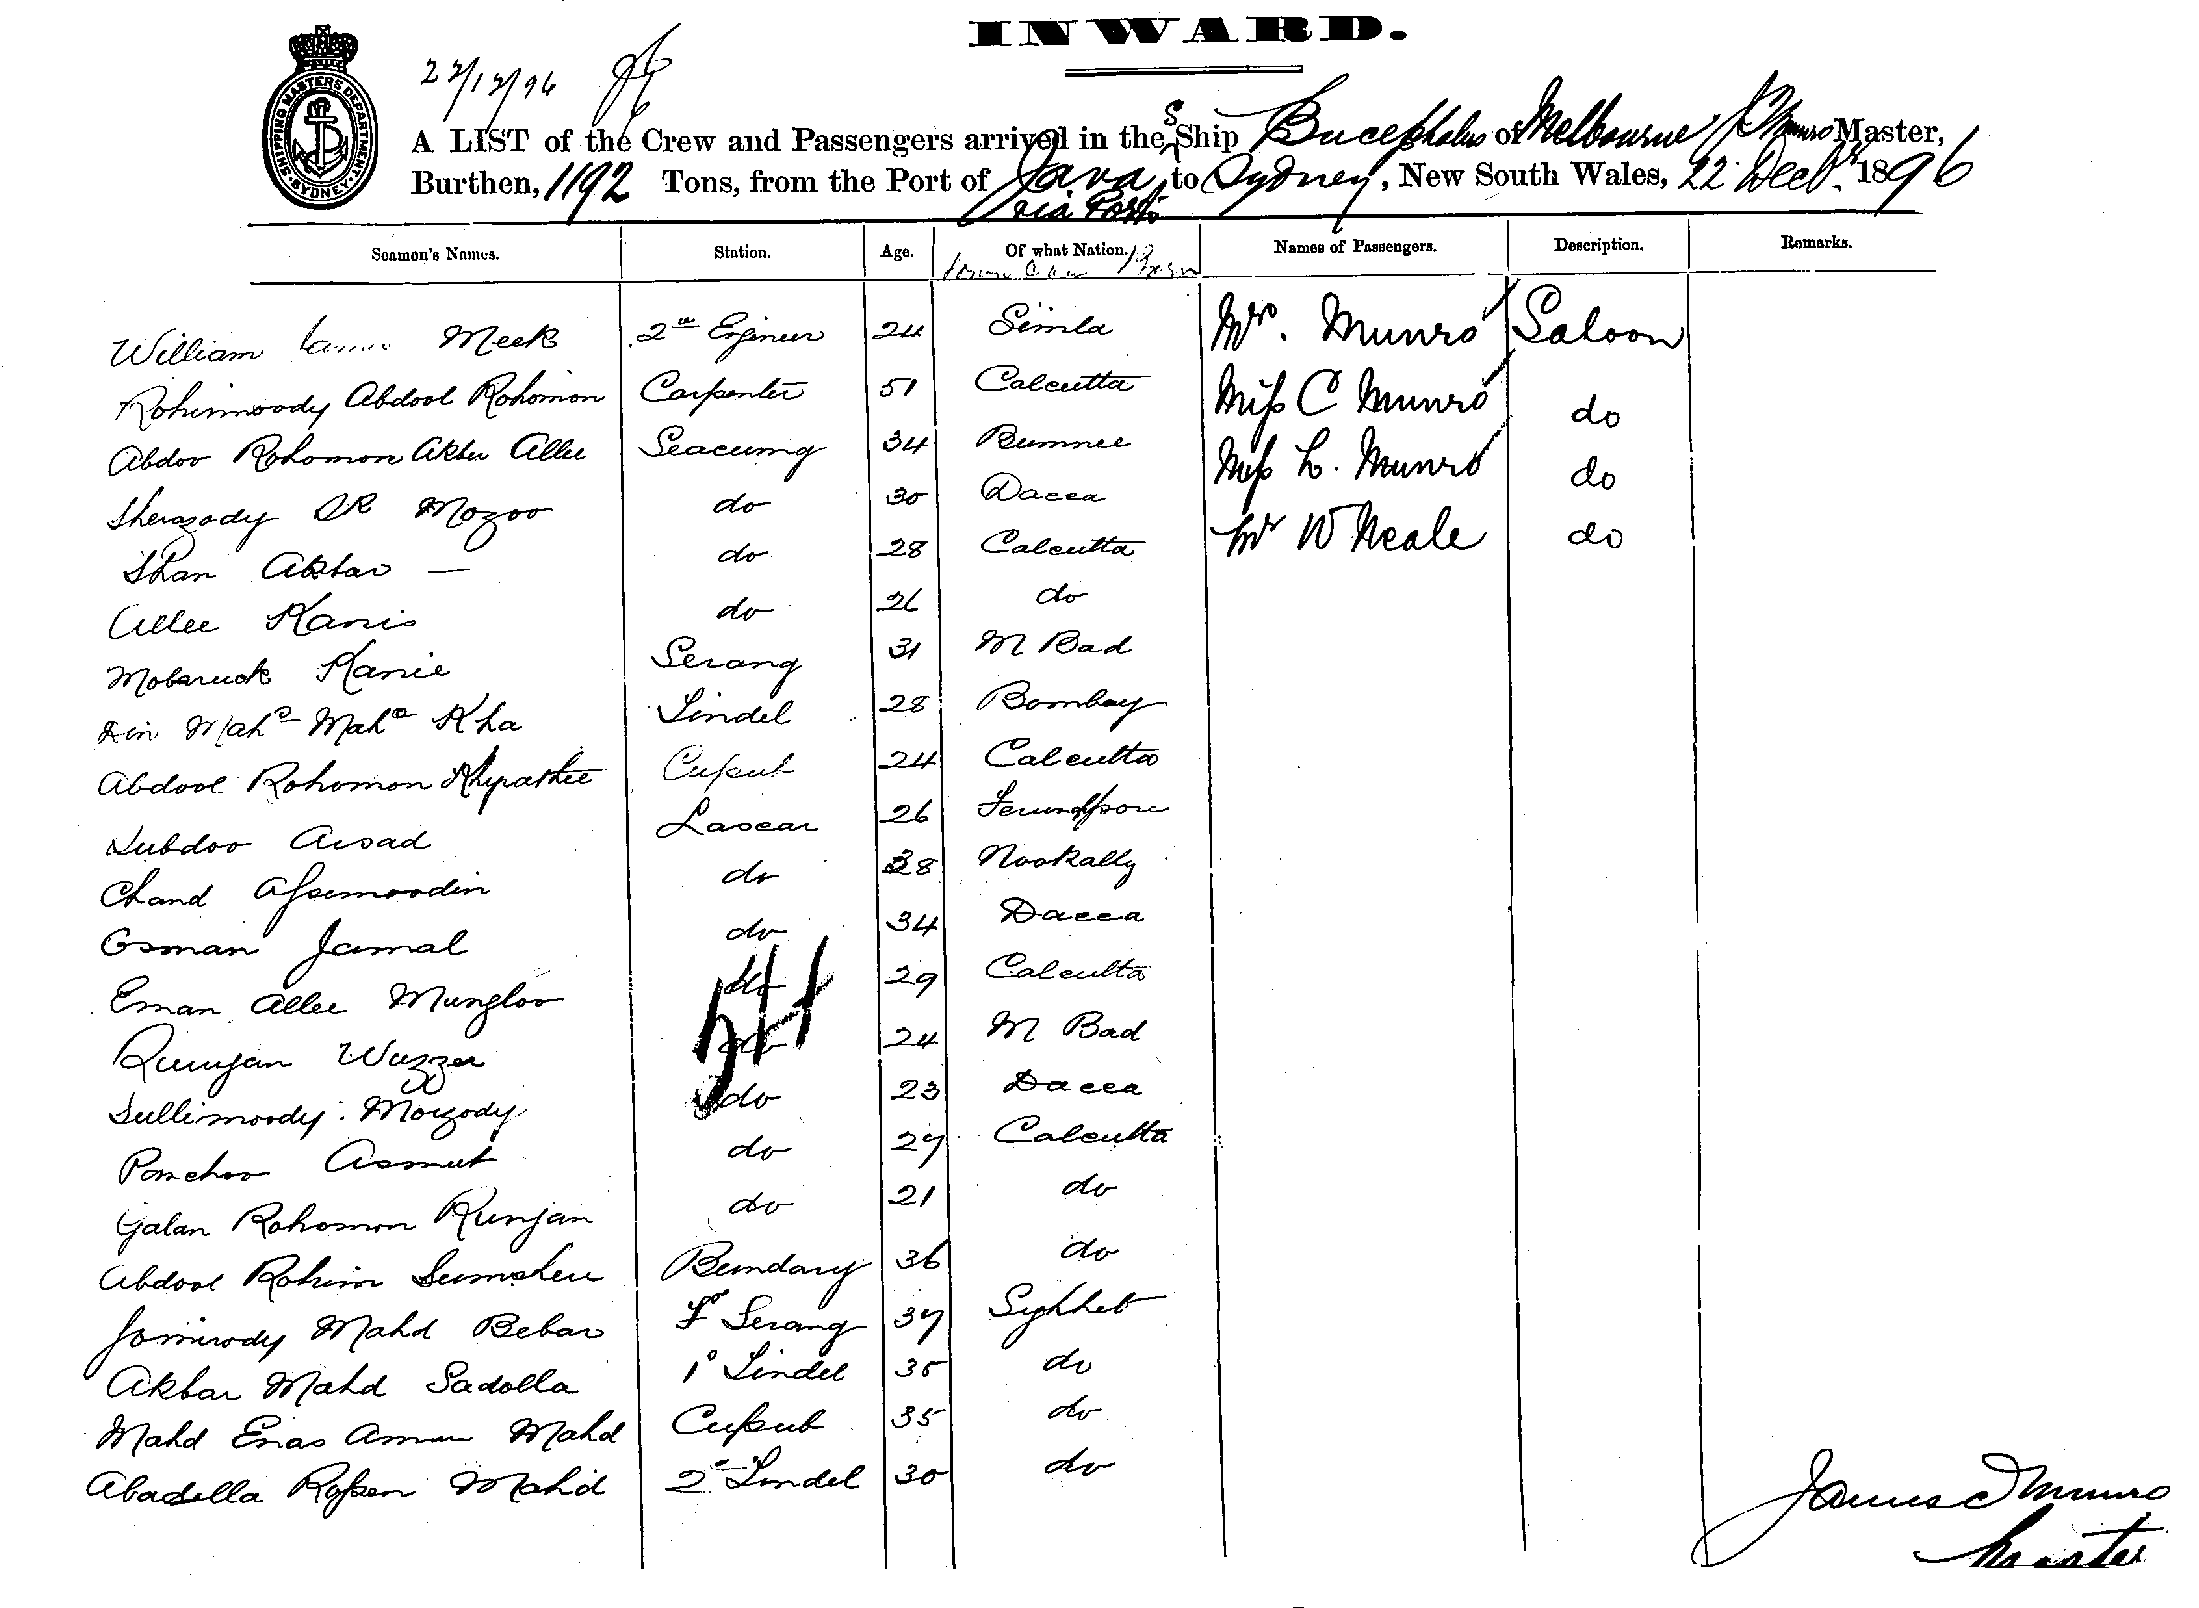 INWARD.
SHIPPING MASTERS DEPARTMENT
SYDNEY
22/12/96
A LIST of the Crew and Passengers arrived in the S Ship Bucephalus of Melbourne, J Munro Master,
Burthen, 1192 Tons, from the Port of Java to Sydney, New South Wales, 22 Decbr. 1896
via Ports
Seamen's Names. Station. Age. Of what Nation. Names of Passengers. Description. Remarks.
William James Meek 2nd Engineer 24 Simla Mrs. Munro Saloon
Rohimoody Abdool Rohomon Carpenter 51 Calcutta Miss C Munro do
Abdoo Rohomon Akbu Allee Seacunny 34 Miss L. Munro do
Sherazody SK Mozoo do 30 Dacca Mr W Neale do
Shan Akbar — do 28 Calcutta
Allee Kanis do 26 do
Mobaruck Kanie Serang 31 M Bad
Din Mahd Mahd Kha Tindel 28 Bombay
Abdool Rohomon Cussub 24 Calcutta
Aisad Lascar 26
Chand do 38 Nookally
Osman Jamal do 34 Dacca
Eman Allee Mungloo do 29 Calcutta
Wuzzer do 24 M Bad
Sullimoody Moyzody do 23 Dacca
Ponchoo Asmut do 27 Calcutta
Golan Rohomon Runjan do 21 do
Abdool Rohim Sumsheu Bundary 36 do
Jomirody Mahd Bebar Fr Serang 37 Sylhet
Akbar Mahd Sadolla 1o Tindel 35 do
Mahd Enas Mahd Cussub 35 do
Abadella Rossen Mahd 2o Tindel 30 do
James Munro
Master